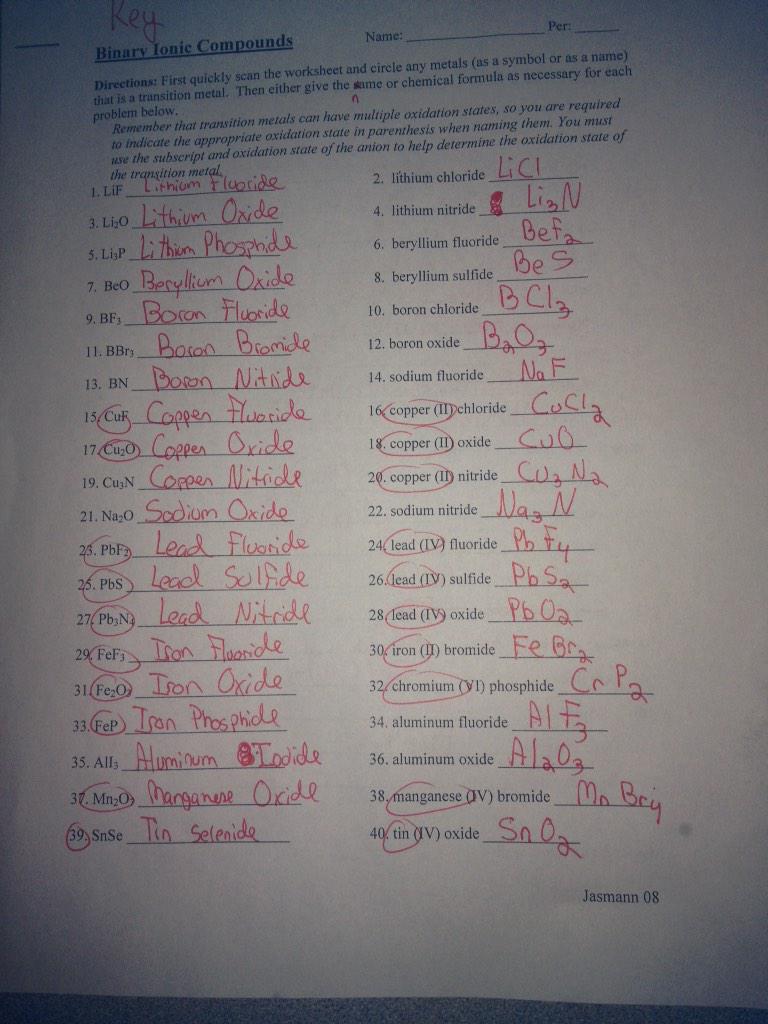 Key
Binary Ionic Compounds Name: Per:
Directions: First quickly scan the worksheet and circle any metals (as a symbol or as a name)
that is a transition metal. Then either give the name or chemical formula as necessary for each
problem below.
Remember that transition metals can have multiple oxidation states, so you are required
to indicate the appropriate oxidation state in parenthesis when naming them. You must
use the subscript and oxidation state of the anion to help determine the oxidation state of
the transition metal.
1. LiF Lithium Fluoride 2. lithium chloride LiCl
3. Li₂O Lithium Oxide 4. lithium nitride Li₃N
5. Li₃P Lithium Phosphide 6. beryllium fluoride BeF₂
7. BeO Beryllium Oxide 8. beryllium sulfide BeS
9. BF₃ Boron Fluoride 10. boron chloride BCl₃
11. BBr₃ Boron Bromide 12. boron oxide B₂O₃
13. BN Boron Nitride 14. sodium fluoride NaF
15. CuF Copper Fluoride 16. copper (II) chloride CuCl₂
17. Cu₂O Copper Oxide 18. copper (II) oxide CuO
19. Cu₃N Copper Nitride 20. copper (II) nitride Cu₃N₂
21. Na₂O Sodium Oxide 22. sodium nitride Na₃N
23. PbF₂ Lead Fluoride 24. lead (IV) fluoride PbF₄
25. PbS Lead Sulfide 26. lead (IV) sulfide PbS₂
27. Pb₃N₄ Lead Nitride 28. lead (IV) oxide PbO₂
29. FeF₃ Iron Fluoride 30. iron (II) bromide FeBr₂
31. Fe₂O₃ Iron Oxide 32. chromium (VI) phosphide CrP₂
33. FeP Iron Phosphide 34. aluminum fluoride AlF₃
35. AlI₃ Aluminum Iodide 36. aluminum oxide Al₂O₃
37. Mn₂O₃ Manganese Oxide 38. manganese (IV) bromide MnBr₄
39. SnSe Tin Selenide 40. tin (IV) oxide SnO₂
Jasmann 08